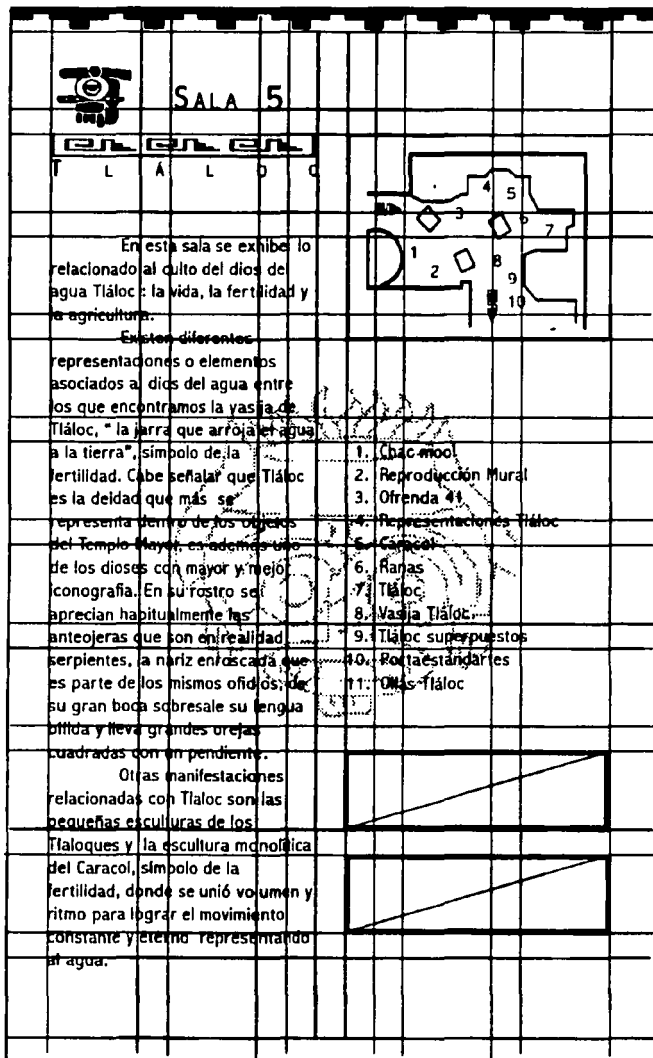 SALA 5
TLÁLOC
4
5
3
6
7
1
8
2
9
10
En esta sala se exhibe lo
relacionado al culto del dios del
agua Tláloc : la vida, la fertilidad y
la agricultura.
Existen diferentes
representaciones o elementos
asociados al dios del agua entre
los que encontramos la vasija de
Tláloc, " la jarra que arroja el agua
a la tierra", símbolo de la
fertilidad. Cabe señalar que Tláloc
es la deidad que más se
representa dentro de los objetos
del Templo Mayor, es además uno
de los dioses con mayor y mejor
iconografía. En su rostro se
aprecian habitualmente las
anteojeras que son en realidad
serpientes, la nariz enroscada que
es parte de los mismos ofidios, de
su gran boca sobresale su lengua
bífida y lleva grandes orejas
cuadradas con un pendiente.
Otras manifestaciones
relacionadas con Tlaloc son las
pequeñas esculturas de los
Tlaloques y la escultura monolítica
del Caracol, símbolo de la
fertilidad, donde se unió volumen y
ritmo para lograr el movimiento
constante y eterno representando
al agua.
1. Chac-mool
2. Reproducción Mural
3. Ofrenda 41
4. Representaciones Tláloc
5. Caracol
6. Ranas
7. Tláloc
8. Vasija Tláloc
9. Tláloc superpuestos
10. Portaestandartes
11. Ollas Tláloc